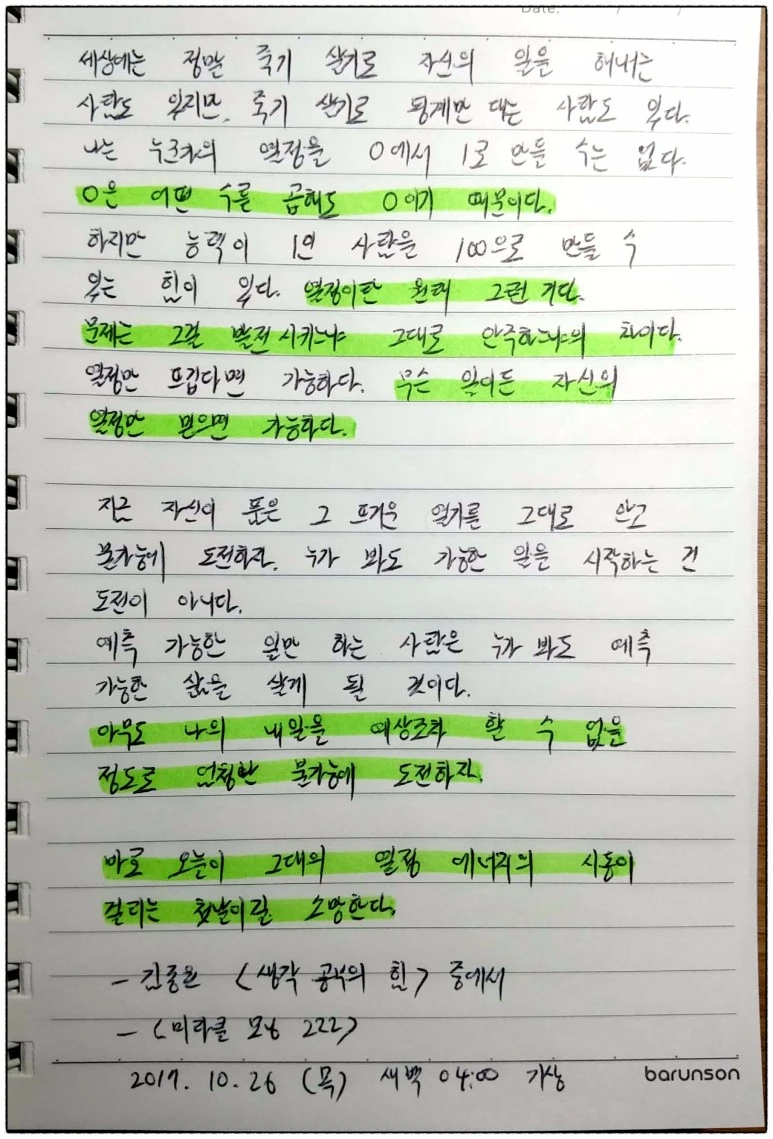 Date. / /
세상에는 정말 죽기 살기로 자신의 일을 해내는
사람도 있지만, 죽기 살기로 핑계만 대는 사람도 있다.
나는 누군가의 열정을 0에서 1로 만들 수는 없다.
0은 어떤 수를 곱해도 0이기 때문이다.
하지만 능력이 1인 사람을 100으로 만들 수
있는 힘이 있다. 열정이란 원래 그런 거다.
문제는 그걸 발전시키느냐 그대로 안주하느냐의 차이다.
열정만 뜨겁다면 가능하다. 무슨 일이든 자신의
열정만 믿으면 가능하다.
지금 자신이 품은 그 뜨거운 열기를 그대로 안고
불가능에 도전하자. 누가 봐도 가능한 일을 시작하는 건
도전이 아니다.
예측 가능한 일만 하는 사람은 누가 봐도 예측
가능한 삶을 살게 될 것이다.
아무도 나의 내일을 예상조차 할 수 없을
정도로 엄청난 불가능에 도전하자.
바로 오늘이 그대의 열정 에너지의 시동이
걸리는 첫날이길 소망한다.
- 김종원 <생각 공부의 힘> 중에서
- <미라클 모닝 222>
2017. 10. 26 (목) 새벽 04:00 기상
barunson